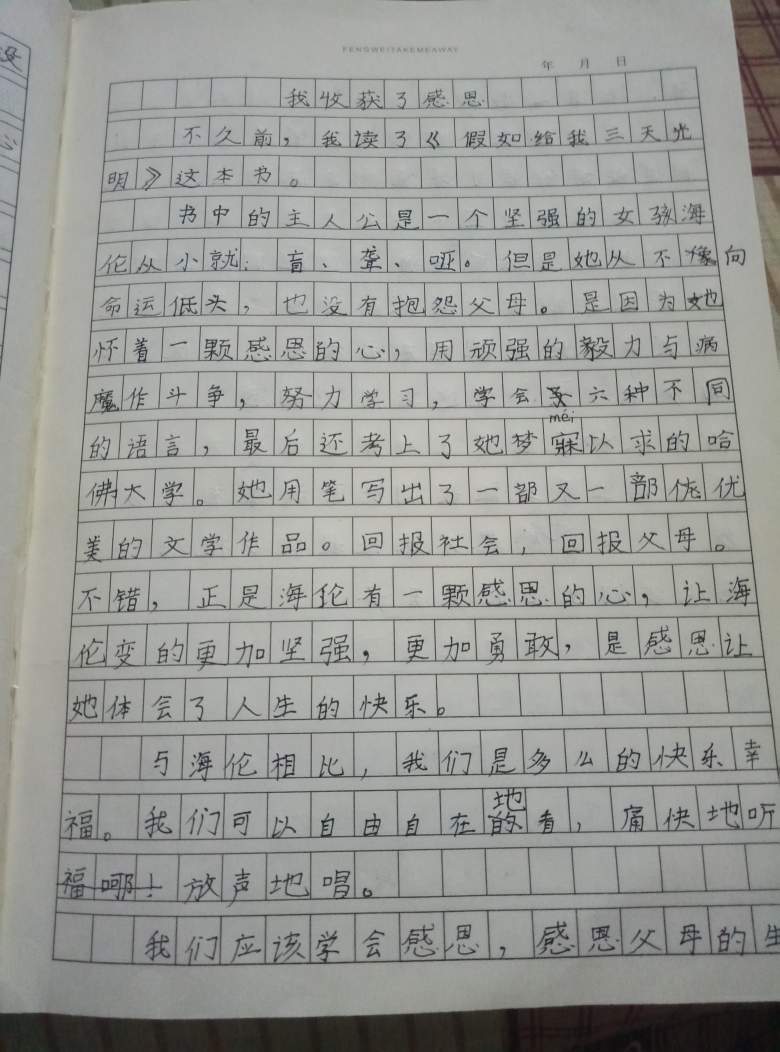 FENGWEITAKEMEAWAY
年 月 日
我收获了感恩
不久前，我读了《假如给我三天光
明》这本书。
书中的主人公是一个坚强的女孩海
伦从小就：盲、聋、哑。但是她从不向
命运低头，也没有抱怨父母。是因为她
怀着一颗感恩的心，用顽强的毅力与病
魔作斗争，努力学习，学会六种不同
méi
的语言，最后还考上了她梦寐以求的哈
佛大学。她用笔写出了一部又一部优
美的文学作品。回报社会，回报父母。
不错，正是海伦有一颗感恩的心，让海
伦变的更加坚强，更加勇敢，是感恩让
她体会了人生的快乐。
与海伦相比，我们是多么的快乐幸
福。我们可以自由自在地看，痛快地听
福哪！放声地唱。
我们应该学会感恩，感恩父母的生
没
心